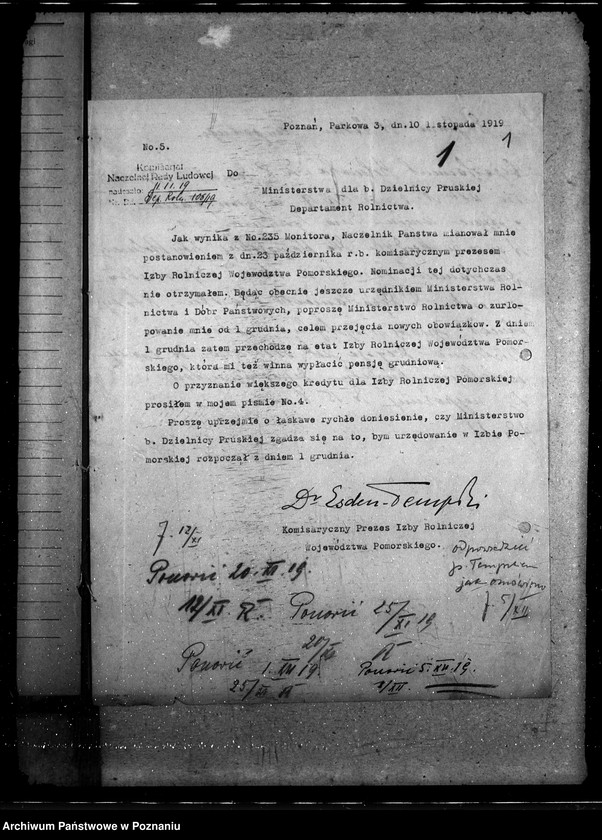 Poznań, Parkowa 3, dn.10 listopada 1919
1
1
No.5.
Komisarjat
Naczelnej Rady Ludowej
nadeszło: 11.11.19
Do
Ministerstwa dla b. Dzielnicy Pruskiej
Departament Rolnictwa.
Jak wynika z No.235 Monitora, Naczelnik Państwa mianował mnie
postanowieniem z dn.23 października r.b. komisarycznym prezesem
Izby Rolniczej Województwa Pomorskiego. Nominacji tej dotychczas
nie otrzymałem. Będąc obecnie jeszcze urzędnikiem Ministerstwa Rol-
nictwa i Dóbr Państwowych, poproszę Ministerstwo Rolnictwa o zurlo-
powanie mnie od 1 grudnia, celem przejęcia nowych obowiązkow. Z dniem
1 grudnia zatem przechodzę na etat Izby Rolniczej Województwa Pomor-
skiego, która mi też winna wypłacić pensję grudniową.
O przyznanie większego kredytu dla Izby Rolniczej Pomorskiej
prosiłem w mojem pismie No.4.
Proszę uprzejmie o łaskawe rychłe doniesienie, czy Ministerstwo
b. Dzielnicy Pruskiej zgadza się na to, bym urzędowanie w Izbie Po-
morskiej rozpoczął z dniem 1 grudnia.
Dr Esden-Tempski
Komisaryczny Prezes Izby Rolniczej
Województwa Pomorskiego.
12/XI
odpowiedzieć
p. Tempskiemu
jak omówiono
5/XII
Ponowić 20.XI.19.
12/XI
Ponowić 25/XI 19
20/XI
Ponowić 1.XII 19.
25/XI
Ponowić 5.XII.19.
2/XII.
Archiwum Państwowe w Poznaniu